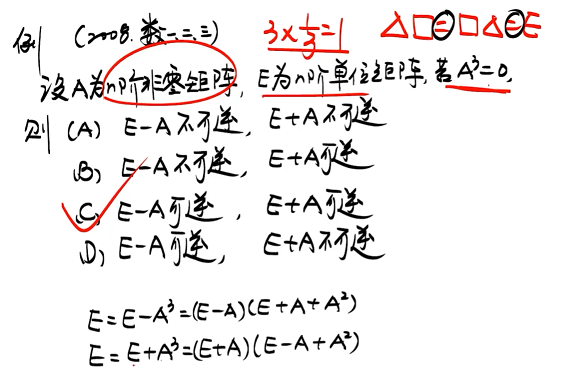 例 (2008.数一、二、三) 3×1/3=1 △□=□△=E
设A为n阶非零矩阵, E为n阶单位矩阵, 若A³=0,
则 (A) E-A不可逆, E+A不可逆
(B) E-A不可逆, E+A可逆
(C) E-A可逆, E+A可逆
(D) E-A可逆, E+A不可逆
E=E-A³=(E-A)(E+A+A²)
E=E+A³=(E+A)(E-A+A²)